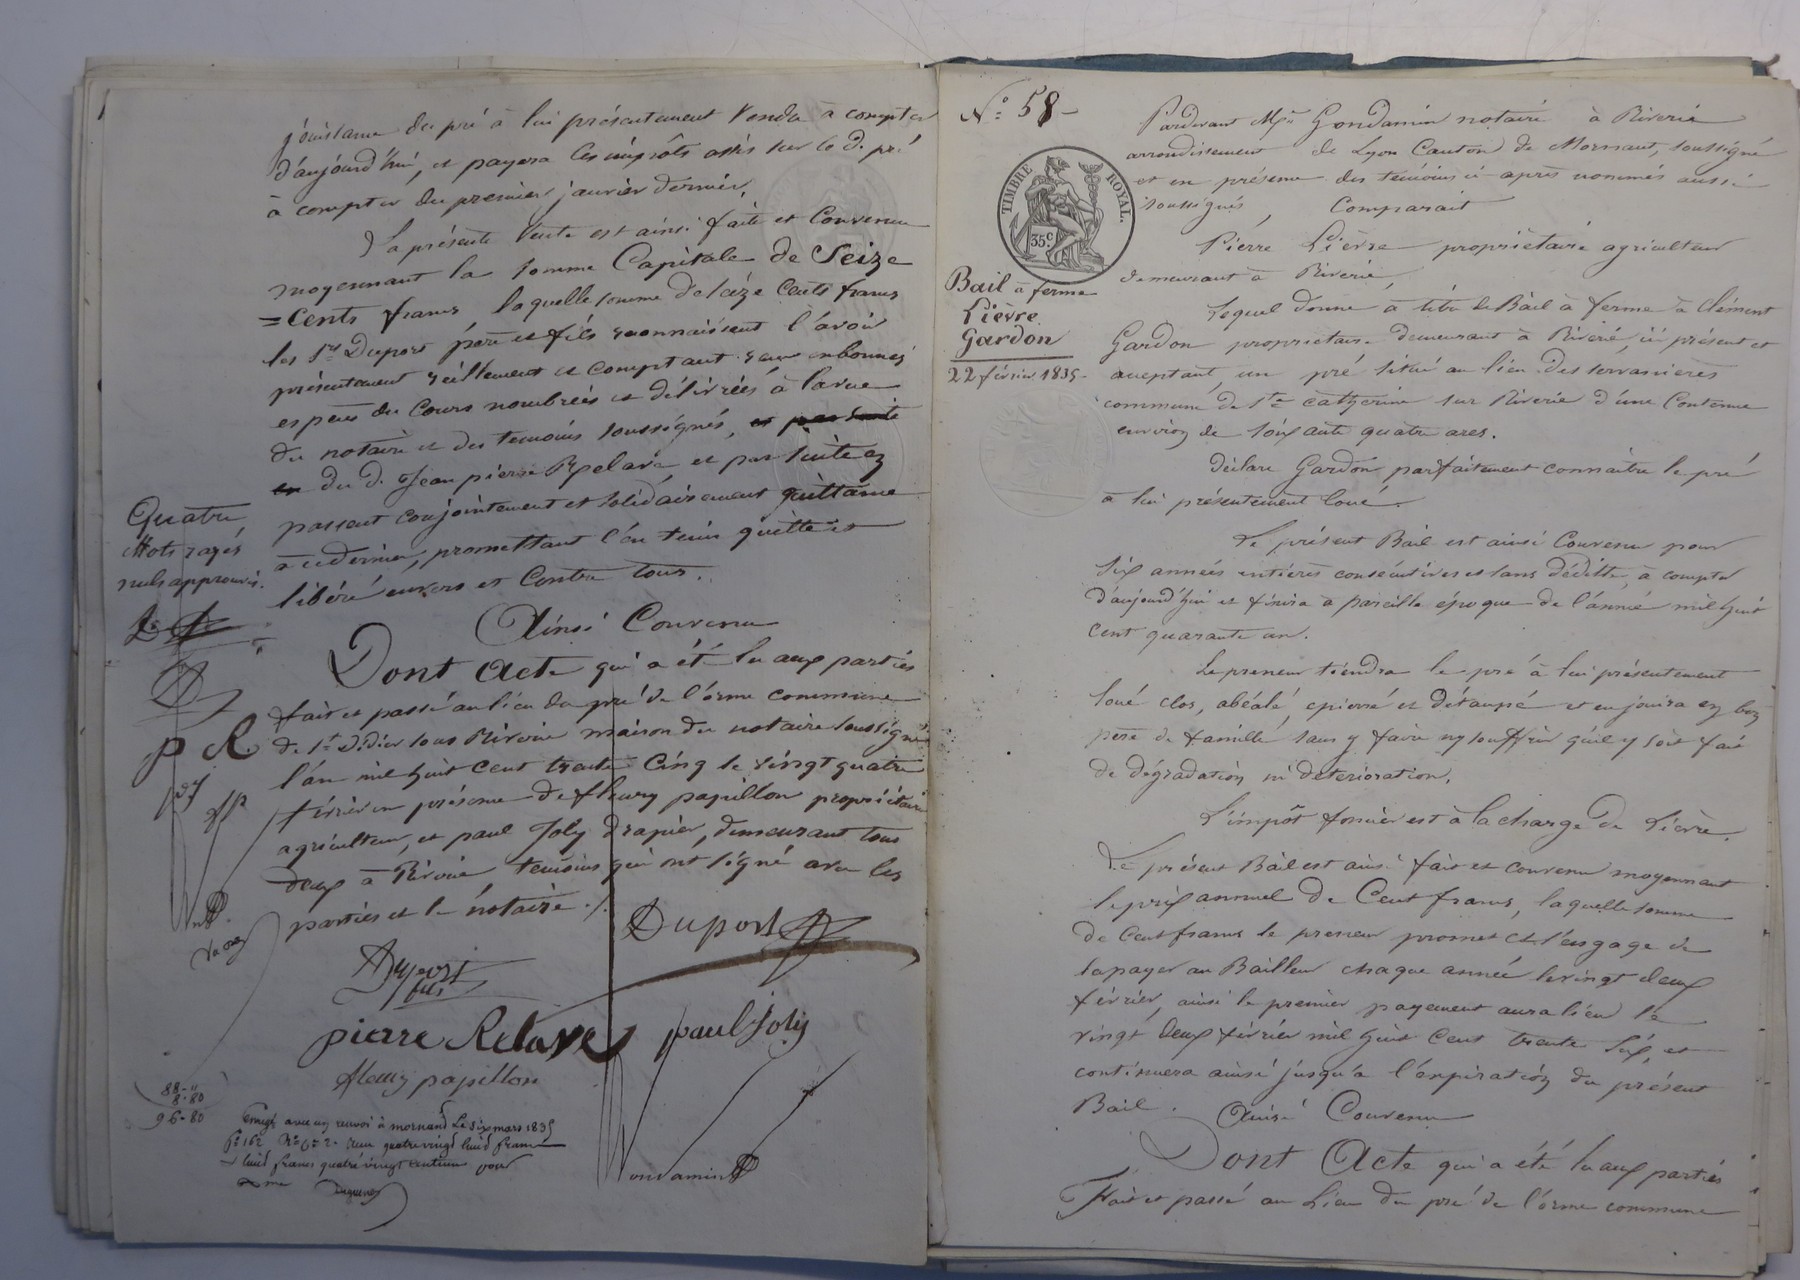 jouissance du pré à lui présentement Vendu à compter
d'aujourd'hui, et payera les impôts assis sur le d. pré
à compter du premier janvier dernier.
La présente Vente est ainsi faite et Convenue
moyennant la somme Capitale de Seize
=Cents francs laquelle somme de seize Cents francs
les Srs Duport père et fils reconnaissent l'avoir
présentement réellement et comptant reçue en bonnes
espèces du Cours nombrées et délivrées à la vue
du notaire et des temoins soussignés,
du d. Jean pierre Relave et par suite en
passent conjointement et solidairement quittance
à ce dernier, promettant l'en tenir quitte et
libéré envers et Contre tous.
Ainsi Convenu
Dont Acte qui a été lu aux parties
fait et passé au lieu du pré de l'orme commune
de St Didier sous Riverie maison du notaire soussigné
l'an mil huit cent trente Cinq le vingt quatre
février en présence de fleury papillon propriétaire
agriculteur, et paul Joly drapier, demeurant tous
deux à Riverie temoins qui ont signé avec les
parties et le notaire ./.
Quatre
Mots rayés
nuls approuvés.
D
p R
Duport
Duport
fils
pierre Relave
paul Joly
fleury papillon
88-"
8-80
96-80
Enregt avec un renvoi à mornand Le six mars 1835
fo 162 Ro Cse 2. reçu quatre vingt huit francs
huit francs quatre vingt centimes pour
Gondamin
No 58-
TIMBRE ROYAL.
35c
Bail à ferme
Lièvre
Gardon
22 février 1835-
Pardevant Me Gondamin notaire à Riverie
arrondissement de Lyon Canton de Mornant, soussigné
et en présence des temoins ci-après nommés aussi
soussignés, Comparait
Pierre Lièvre propriétaire agriculteur
demeurant à Riverie,
Lequel donne à titre de Bail à ferme à Clément
Gardon propriétaire demeurant à Riverie, ici présent et
acceptant, un pré situé au lieu des
commune de Ste Catherine sur Riverie d'une Contenue
environ de soixante quatre ares.
Déclare Gardon parfaitement connaitre le pré
à lui présentement loué.
Le présent Bail est ainsi Convenu pour
six années entières consécutives et sans déditte, à compter
d'aujourd'hui et finira à pareille époque de l'année mil huit
cent quarante un.
Le preneur tiendra le pré à lui présentement
loué clos, abéalé, epierré et détaupé et en jouira en bon
père de famille sans y faire ny souffrir qu'il y soit fait
de dégradation ni deterioration.
L'impôt foncier est à la charge de Lièvre.
Le présent Bail est ainsi fait et convenu moyennant
le prix annuel de Cent francs, laquelle somme
de Cent francs le preneur promet et s'engage de
la payer au Bailleur chaque année le vingt deux
février, ainsi le premier payement aura lieu le
vingt deux février mil huit Cent trente six, et
continuera ainsi jusqu'à l'expiration du présent
Bail. Ainsi Convenu
Dont Acte qui a été lu aux parties
Fait et passé au Lieu du pré de l'orme commune